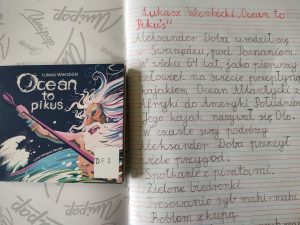 Łukasz Wierzbicki
Ocean
to
pikuś
Łukasz Wierzbicki „Ocean to
Pikuś”
Aleksander Doba urodził się
w Swarzędzu, pod Poznaniem.
W wieku 64 lat, jako pierwszy
człowiek na świecie przepłynął
kajakiem Ocean Atlantycki z
Afryki do Ameryki Południo
Jego kajak nazywał się Olo.
W czasie swej podróży
Aleksander Doba przeżył
wiele przygód:
1. Spotkanie z piratami.
2. Zielone biedronki.
3. Tresowanie ryb mahi-mahi
4. Problem z kupą.